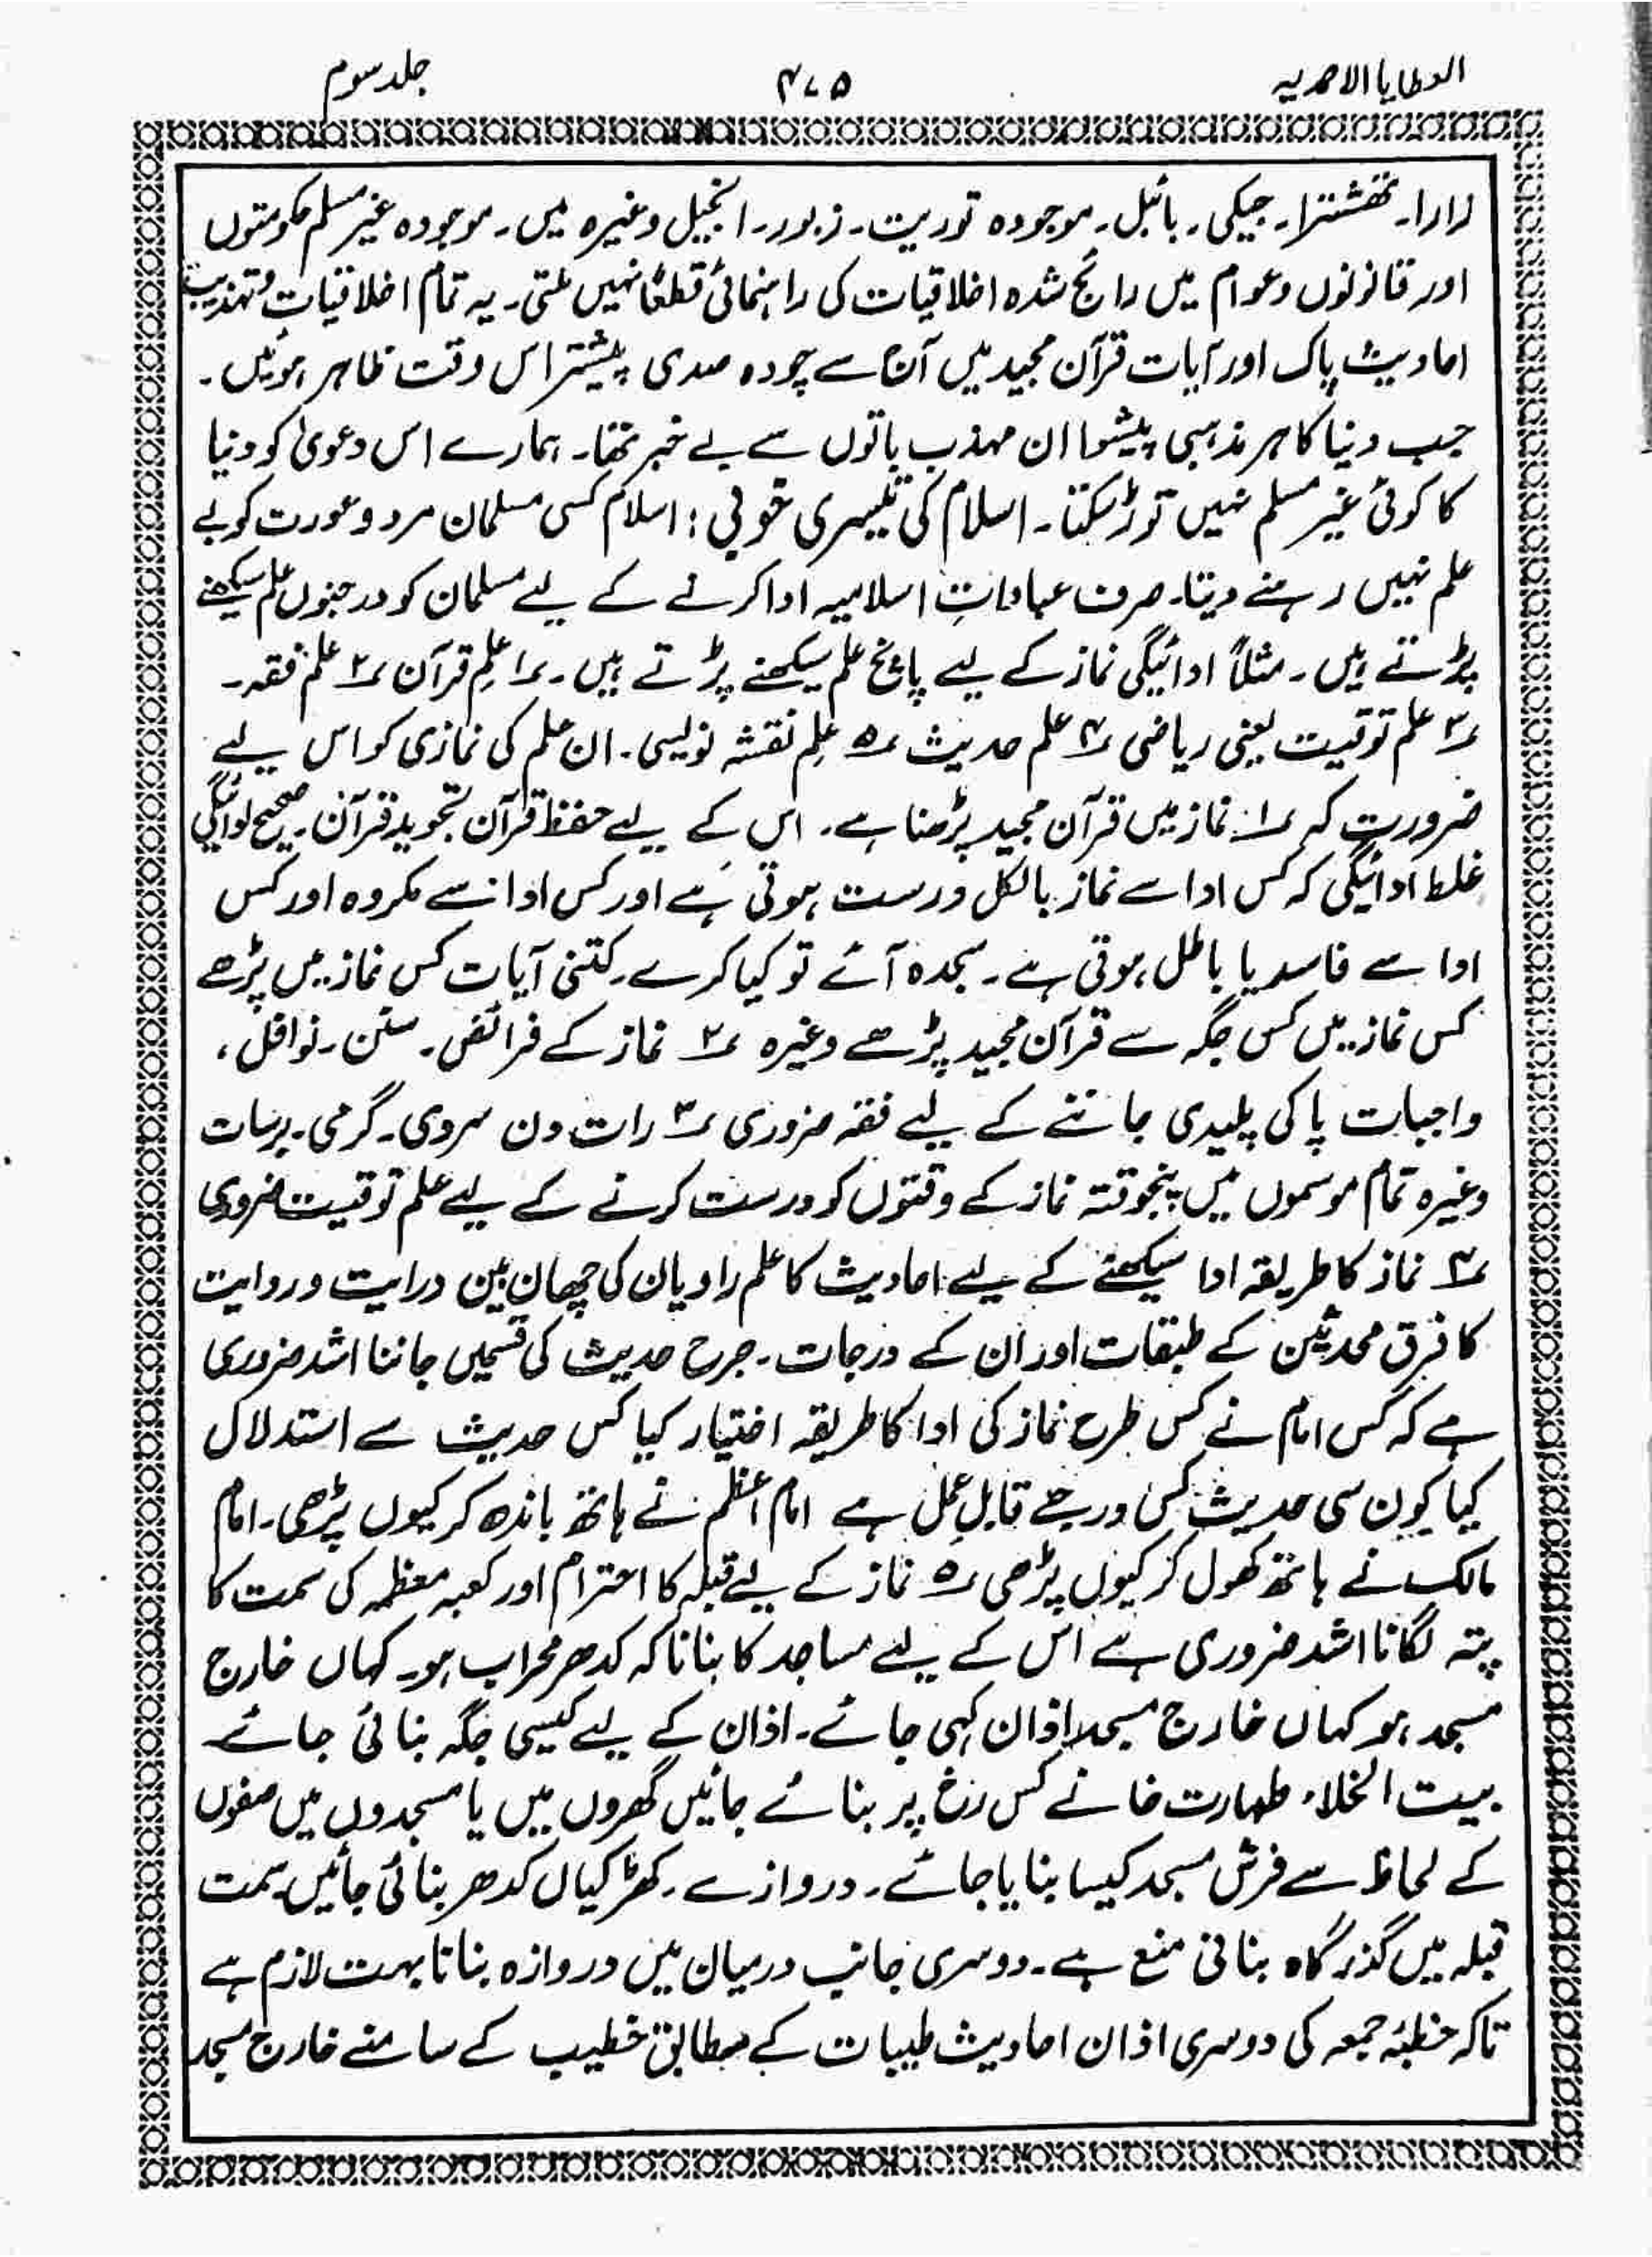 العطایا الاحمدیہ
۴۷۵
جلد سوم
لارا۔ تھشترا۔ جیکی۔ بائبل۔ موجودہ توریت۔ زبور۔ انجیل وغیرہ میں۔ موجودہ غیر مسلم حکومتوں
اور قانونوں وعوام میں رائج شدہ اخلاقیات کی راہنمائی قطعًا نہیں ملتی۔ یہ تمام اخلاقیاتِ و تہذیب
احادیث پاک اور آیات قرآن مجید میں آج سے چودہ صدی پیشتر اس وقت ظاہر ہوئیں۔
جب دنیا کا ہر مذہبی پیشوا ان مہذب باتوں سے بے خبر تھا۔ ہمارے اس دعویٰ کو دنیا
کا کوئی غیر مسلم نہیں توڑ سکتا۔ اسلام کی تیسری خوبی: اسلام کسی مسلمان مرد و عورت کو بے
علم نہیں رہنے دیتا۔ صرف عباداتِ اسلامیہ ادا کرنے کے لیے مسلمان کو درجنوں علم سیکھنے
پڑتے ہیں۔ مثلًا ادائیگی نماز کے لیے پانچ علم سیکھنے پڑتے ہیں۔ ؁۱ علمِ قرآن ؁۲ علم فقہ۔
؁۳ علم توقیت یعنی ریاضی ؁۴ علم حدیث ؁۵ علِم نقشہ نویسی۔ ان علم کی نمازی کو اس لیے
ضرورت کہ ؁۱: نماز میں قرآن مجید پڑھنا ہے۔ اس کے لیے حفظ قرآن تجوید قرآن۔ صحیح ادائیگی
غلط ادائیگی کہ کس ادا سے نماز بالکل درست ہوتی ہے اور کس ادا سے مکروہ اور کس
ادا سے فاسد یا باطل ہوتی ہے۔ سجدہ آئے تو کیا کرے۔ کتنی آیات کس نماز میں پڑھے
کس نماز میں کس جگہ سے قرآن مجید پڑھے وغیرہ ؁۲ نماز کے فرائض۔ سنن۔ نوافل،
واجبات پاکی پلیدی جاننے کے لیے فقہ ضروری ؁۳ رات دن سردی۔ گرمی۔ برسات
وغیرہ تمام موسموں میں پنجوقتہ نماز کے وقتوں کو درست کرنے کے لیے علم توقیت ضروری
؁۴ نماز کا طریقہ ادا سیکھنے کے لیے احادیث کا علم راویان کی چھان بین درایت و روایت
کا فرق محدثین کے طبقات اور ان کے درجات۔ جرح حدیث کی قسمیں جاننا اشد ضروری
ہے کہ کس امام نے کس طرح نماز کی ادا کا طریقہ اختیار کیا کس حدیث سے استدلال
کیا کون سی حدیث کس درجے قابلِ عمل ہے امام اعظم نے ہاتھ باندھ کر کیوں پڑھی۔ امام
مالک نے ہاتھ کھول کر کیوں پڑھی ؁۵ نماز کے لیے قبلہ کا احترام اور کعبہ معظمہ کی سمت کا
پتہ لگانا اشد ضروری ہے اس کے لیے مساجد کا بنانا کہ کدھر محراب ہو۔ کہاں خارج
مسجد ہو کہاں خارج مسجد اذان کہی جائے۔ اذان کے لیے کیسی جگہ بنائی جائے۔
بیت الخلاء طہارت خانے کس رخ پر بنائے جائیں گھروں میں یا مسجدوں میں صفوں
کے لحاظ سے فرش مسجد کیسا بنایا جائے۔ دروازے۔ کھڑکیاں کدھر بنائی جائیں۔ سمت
قبلہ میں گذر گاہ بنانی منع ہے۔ دوسری جانب درمیان میں دروازہ بنانا بہت لازم ہے
تاکہ خطبۂ جمعہ کی دوسری اذان احادیث طیبات کے مطابق خطیب کے سامنے خارج مسجد